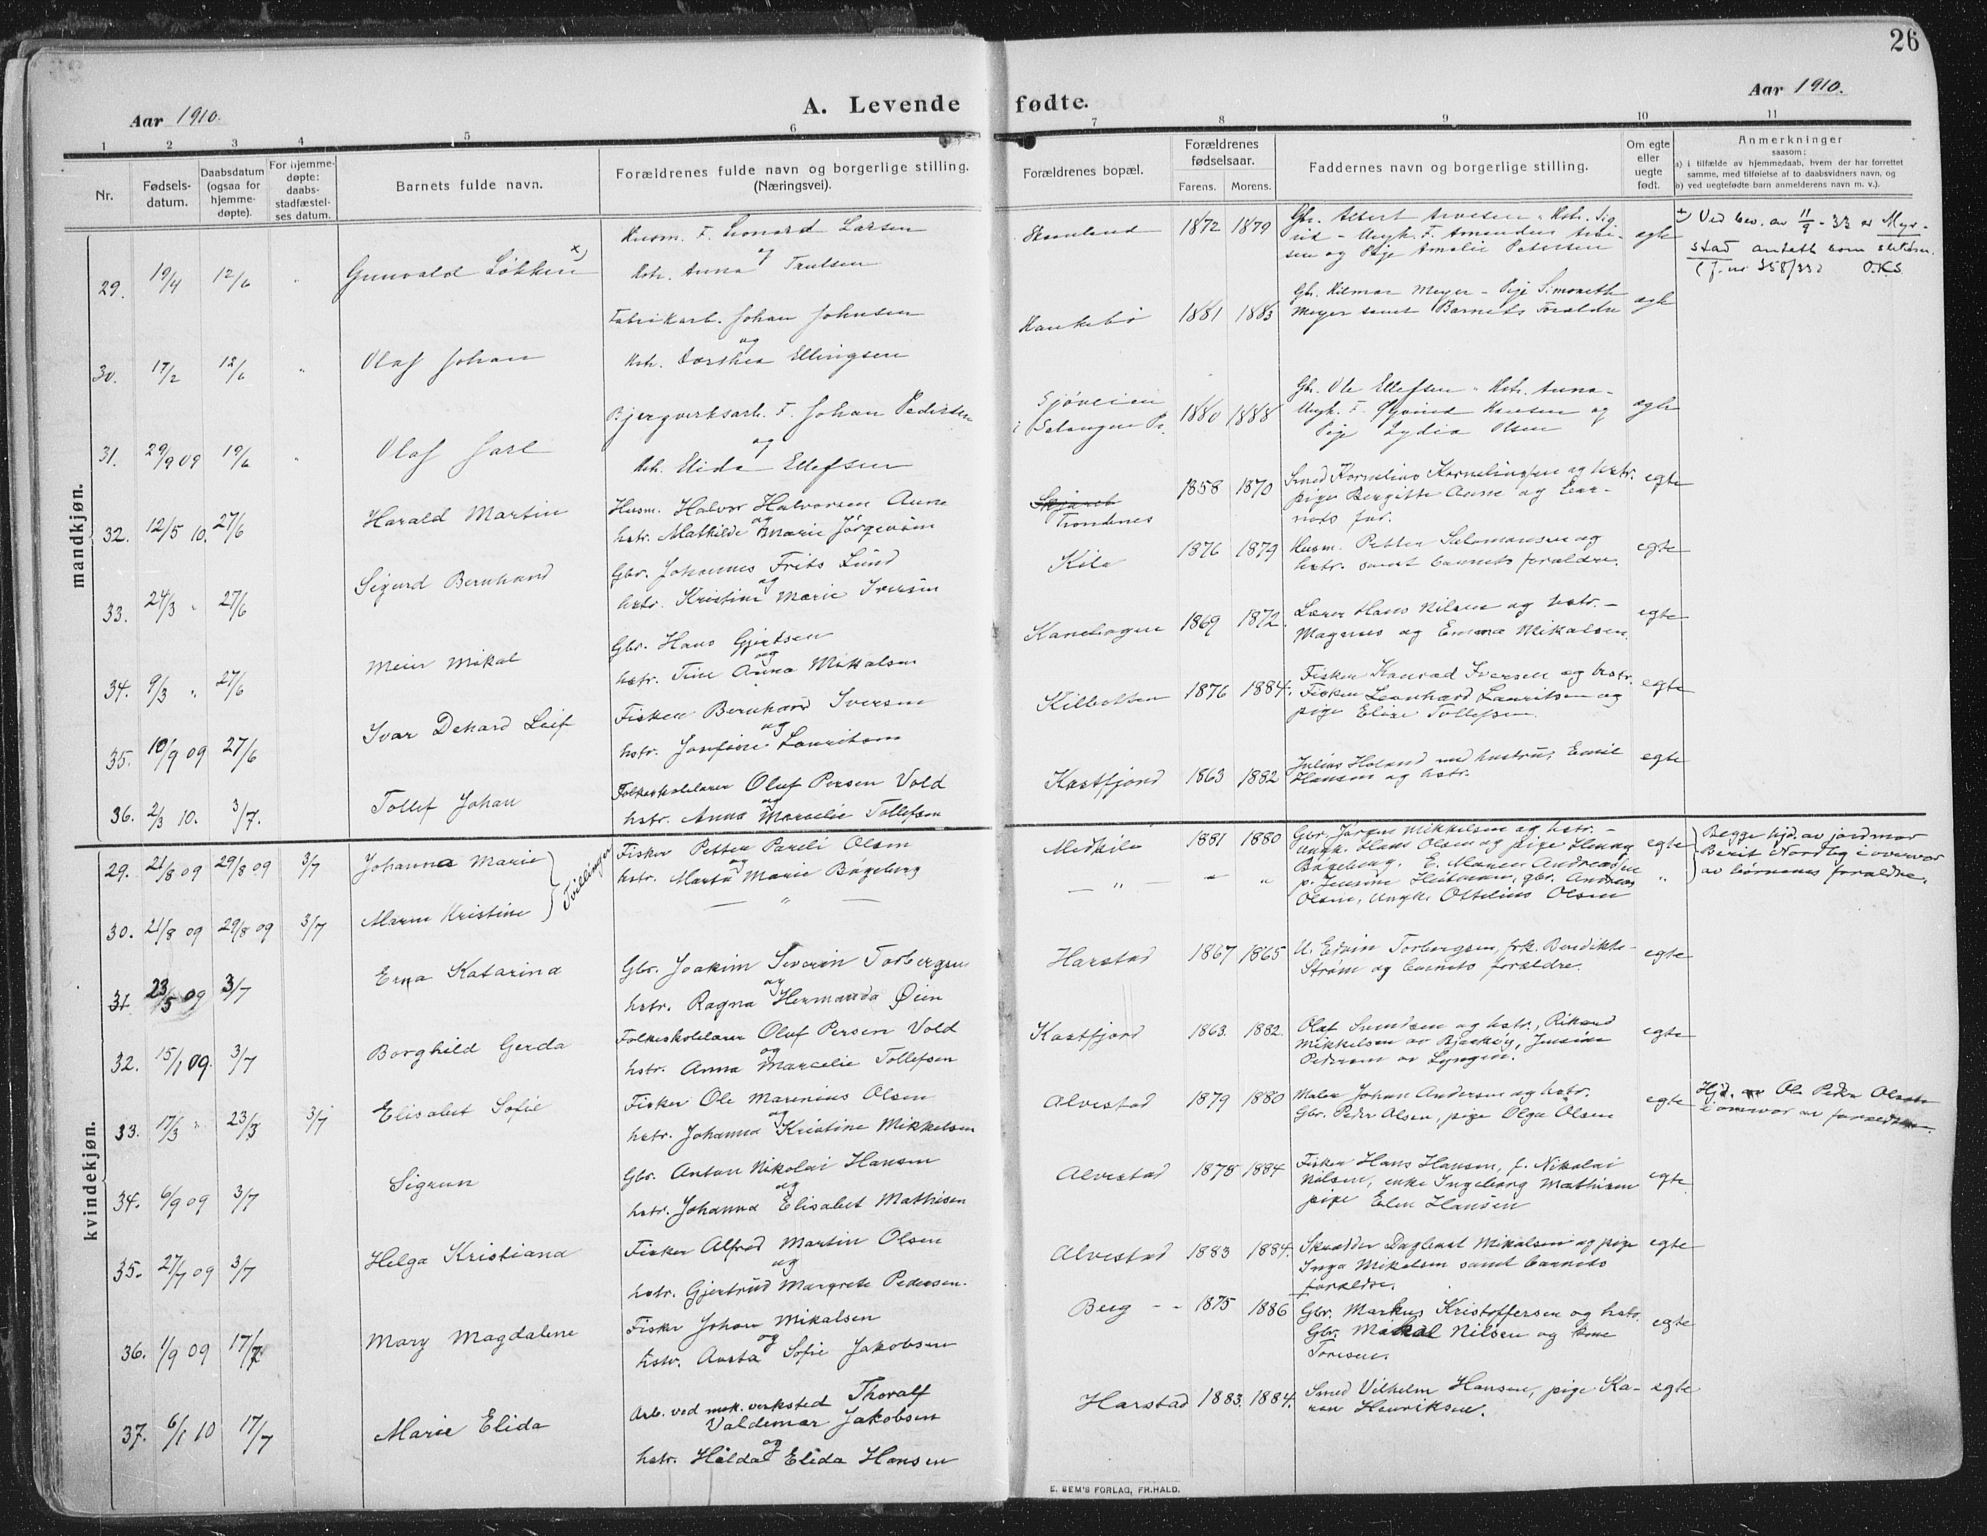 26
Aar 1910.
A. Levende fødte.
Aar 1910.
1 2 3 4 5 6 7 8 9 10 11
Nr.
Fødsels-
datum.
Daabsdatum
(ogsaa for
hjemme-
døpte).
For hjemme-
døpte:
daabs-
stadfæstel-
ses datum.
Barnets fulde navn.
Forældrenes fulde navn og borgerlige stilling.
(Næringsvei).
Forældrenes bopæl.
Forældrenes
fødselsaar.
Farens. Morens.
Faddernes navn og borgerlige stilling.
Om egte
eller
uegte
født.
Anmerkninger
saasom:
a) i tilfælde av hjemmedaab, hvem der har forrettet
samme, med tilføielse af to daabsvidners navn, og
b) ved uegtefødte barn anmelderens navn m. v.).
mandkjøn.
29. 19/4 12/6 " Gunvald Løkken x)
Husm. F. Leonard Larsen
og
Hst. Anna Trulsen
1872 1879
Gbr. Albert Arvesen
Amalie Petersen
egte
x) Ved bev. av 11/9 - 33 er Myr-
stad antatt som slektsn.
(j. nr 358/33) O.K.S.
30. 17/2 12/6 " Olaf Johan
Fabrikarb. Johan Johnsen
og
Hst. Dorthea Ellingsen
1881 1883
Gb. Hilmar Meyer - Pige Simoneth
Meyer samt Barnets Forældre
egte
31. 29/9 09 19/6 " Olaf Jarl
Bjergverksarb. F. Johan Pedersen
og
Hst. Elida Ellefsen
Sjøveien
i Salangen Pr.
1880 1888
Gb. Ole Ellefsen " Hst. Anna
Ungk. F. Øyvind Hansen og
Pige Lydia Olsen
egte
32. 12/5 10. 27/6 Harald Martin
Husm. Halvor Halvorsen Aune
og
hstr. Mathilde Marie Jørgensen
Trondenes
1858 1870
Smed Kornelius Kornelinssen og hstr.
pige Bergitte Aune og bar-
nets far.
egte
33. 24/3 " 27/6 Sigurd Bernhard
Gbr. Johannes Frits Lund
og
hstr. Kristine Marie Iversen
Kila
1876 1879
Husm. Petter Salomonsen og
hstr. samt barnets forældre.
egte
34. 9/3 " 27/6 Meier Mikal
Gbr. Hans Gjertsen
og
hstr. Tine Anna Mikalsen
Kanebogen
1869 1872.
Lærer Hans Nilsen og hstr. -
Magnus og Emma Mikalsen.
egte
35. 10/9 09 27/6 Ivar Dehard Leif
Fisker Bernhard Iversen
og
hstr. Josefine Lauritsen
Kilbotten
1876 1884.
Fisker Konrad Iversen og hstr.
Fisker Leonhard Lauritsen og
pige Elise Tollefsen.
egte
36. 2/3 10. 3/7. Tollef Johan
Folkeskolelærer Oluf Persen Vold
og
hstr. Anna Marcelie Tollefsen
Kastfjord
1863 1882
Julius Holand med hustru, Emil
Hansen og hstr.
egte
kvindekjøn.
29. 21/8 09 29/8 09 3/7 Johanna Marie
Tvillinger
Fisker Petter Pareli Olsen
og
hstr. Marta Marie Bøgeberg
Medkila
1881 1880
Gbr. Jørgen Mikkelsen og hstr. -
ungk. Hans Olsen og pige Henny
Bøgeberg.
egte
Begge hjd. av jordmor
Berit Nordby i overvær
av børnenes forældre.
30. 21/8 09 29/8 09 3/7 Maren Kristine
— " —
— " — " "
E. Maren Andreassen
p. Jensine Heitmann, gbr. Andreas
Olsen, ungk. Ottelius Olsen
"
31. 23/5 09 3/7 Erna Katarina
Gbr. Joakim Severin Torbergsen
og
hstr. Ragna Hermanda Øien
Harstad
1867 1865
U. Edvin Torbergsen, frk. Benedikte
Strøm og barnets forældre.
egte
32. 15/1 09. 3/7 Borghild Gerda
Folkeskolelærer Oluf Persen Vold
og
hstr. Anna Marcelie Tollefsen
Kastfjord
1863. 1882.
Olaf Svendsen og hstr., Rikard
Mikkelsen av Bjarkøy, Jensine
Pedersen av Lyngen.
egte
33. 17/3 " 23/3 3/7 Elisabet Sofie
Fisker Ole Marinius Olsen
og
hstr. Johanna Kristine Mikkelsen
Alvestad
1879 1880
Maler Johan Andersen og hstr.
Gbr. Peder Olsen, pige Olga Olsen
egte
Hjd. av Ole Peder Olsen
i overvær av forældrene.
34. 6/9 09 3/7 Sigrun
Gbr. Anton Nikolai Hansen
og
hstr. Johanna Elisabet Mathisen
Alvestad
1875 1884
Fisker Hans Hansen, f. Nikolai
Nilsen, enke Ingeborg Mathisen
pige Elen Hansen
egte.
35. 27/7 09 3/7 Helga Kristiana
Fisker Alfred Martin Olsen
og
hstr. Gjertrud Margrete Pedersen.
Alvestad
1883 1884.
Skrædder Dagbart Mikalsen og pige
Inga Mikelsen samt barnets
forældre.
egte
36. 1/9 09 17/7 Mary Magdalene
Fisker Johan Mikalsen
og
hstr. Avsta Sofie Jakobsen
Berg - -
1875 1886
Gbr. Markus Kristoffersen og hstr.
Gbr. Mikal Nilsen og kone
Toresen.
egte
37. 6/1 10 17/7 Marie Elida
Arb. ved mek. verksted Thoralf
Valdemar Jakobsen
og
hstr. Hilda Elida Hansen
Harstad
1883. 1884.
Smed Vilhelm Hansen, pige Ka-
ren Henriksen.
egte
E. SEM'S FORLAG, FR.HALD.